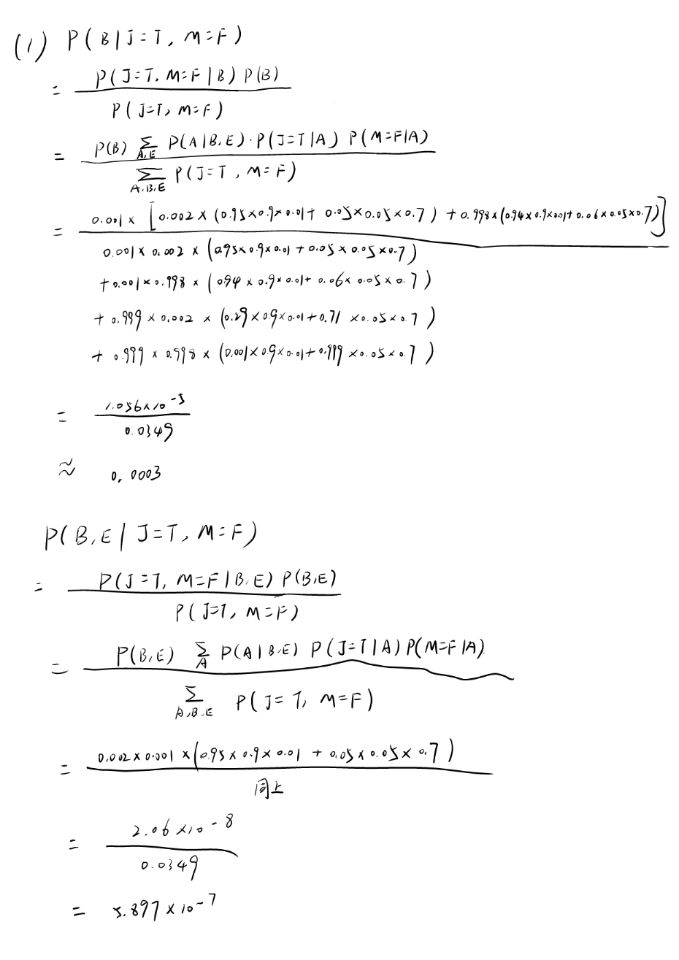 (1) P(B|J=T, M=F)
= P(J=T, M=F|B) P(B)
P(J=T, M=F)
= P(B) Σ A,E P(A|B,E)·P(J=T|A) P(M=F|A)
Σ A,B,E P(J=T, M=F)
= 0.001 × [0.002 × (0.95×0.9×0.01 + 0.05×0.05×0.7) + 0.998×(0.94×0.9×0.01+0.06×0.05×0.7)]
0.001 × 0.002 × (0.95×0.9×0.01 + 0.05×0.05×0.7)
+ 0.001 × 0.998 × (0.94 × 0.9×0.01 + 0.06× 0.05× 0.7)
+ 0.999 × 0.002 × (0.29×0.9×0.01+0.71 ×0.05×0.7)
+ 0.999 × 0.998 × (0.001×0.9×0.01+0.999 ×0.05×0.7)
= 1.056×10⁻⁵
0.0349
≈ 0.0003
P(B,E| J=T, M=F)
= P(J=T, M=F|B,E) P(B,E)
P(J=T, M=F)
= P(B,E) Σ A P(A|B,E) P(J=T|A) P(M=F|A)
Σ A,B,E P(J=T, M=F)
= 0.002×0.001 ×(0.95× 0.9× 0.01 + 0.05×0.05× 0.7)
同上
= 2.06 ×10⁻⁸
0.0349
= 5.897×10⁻⁷